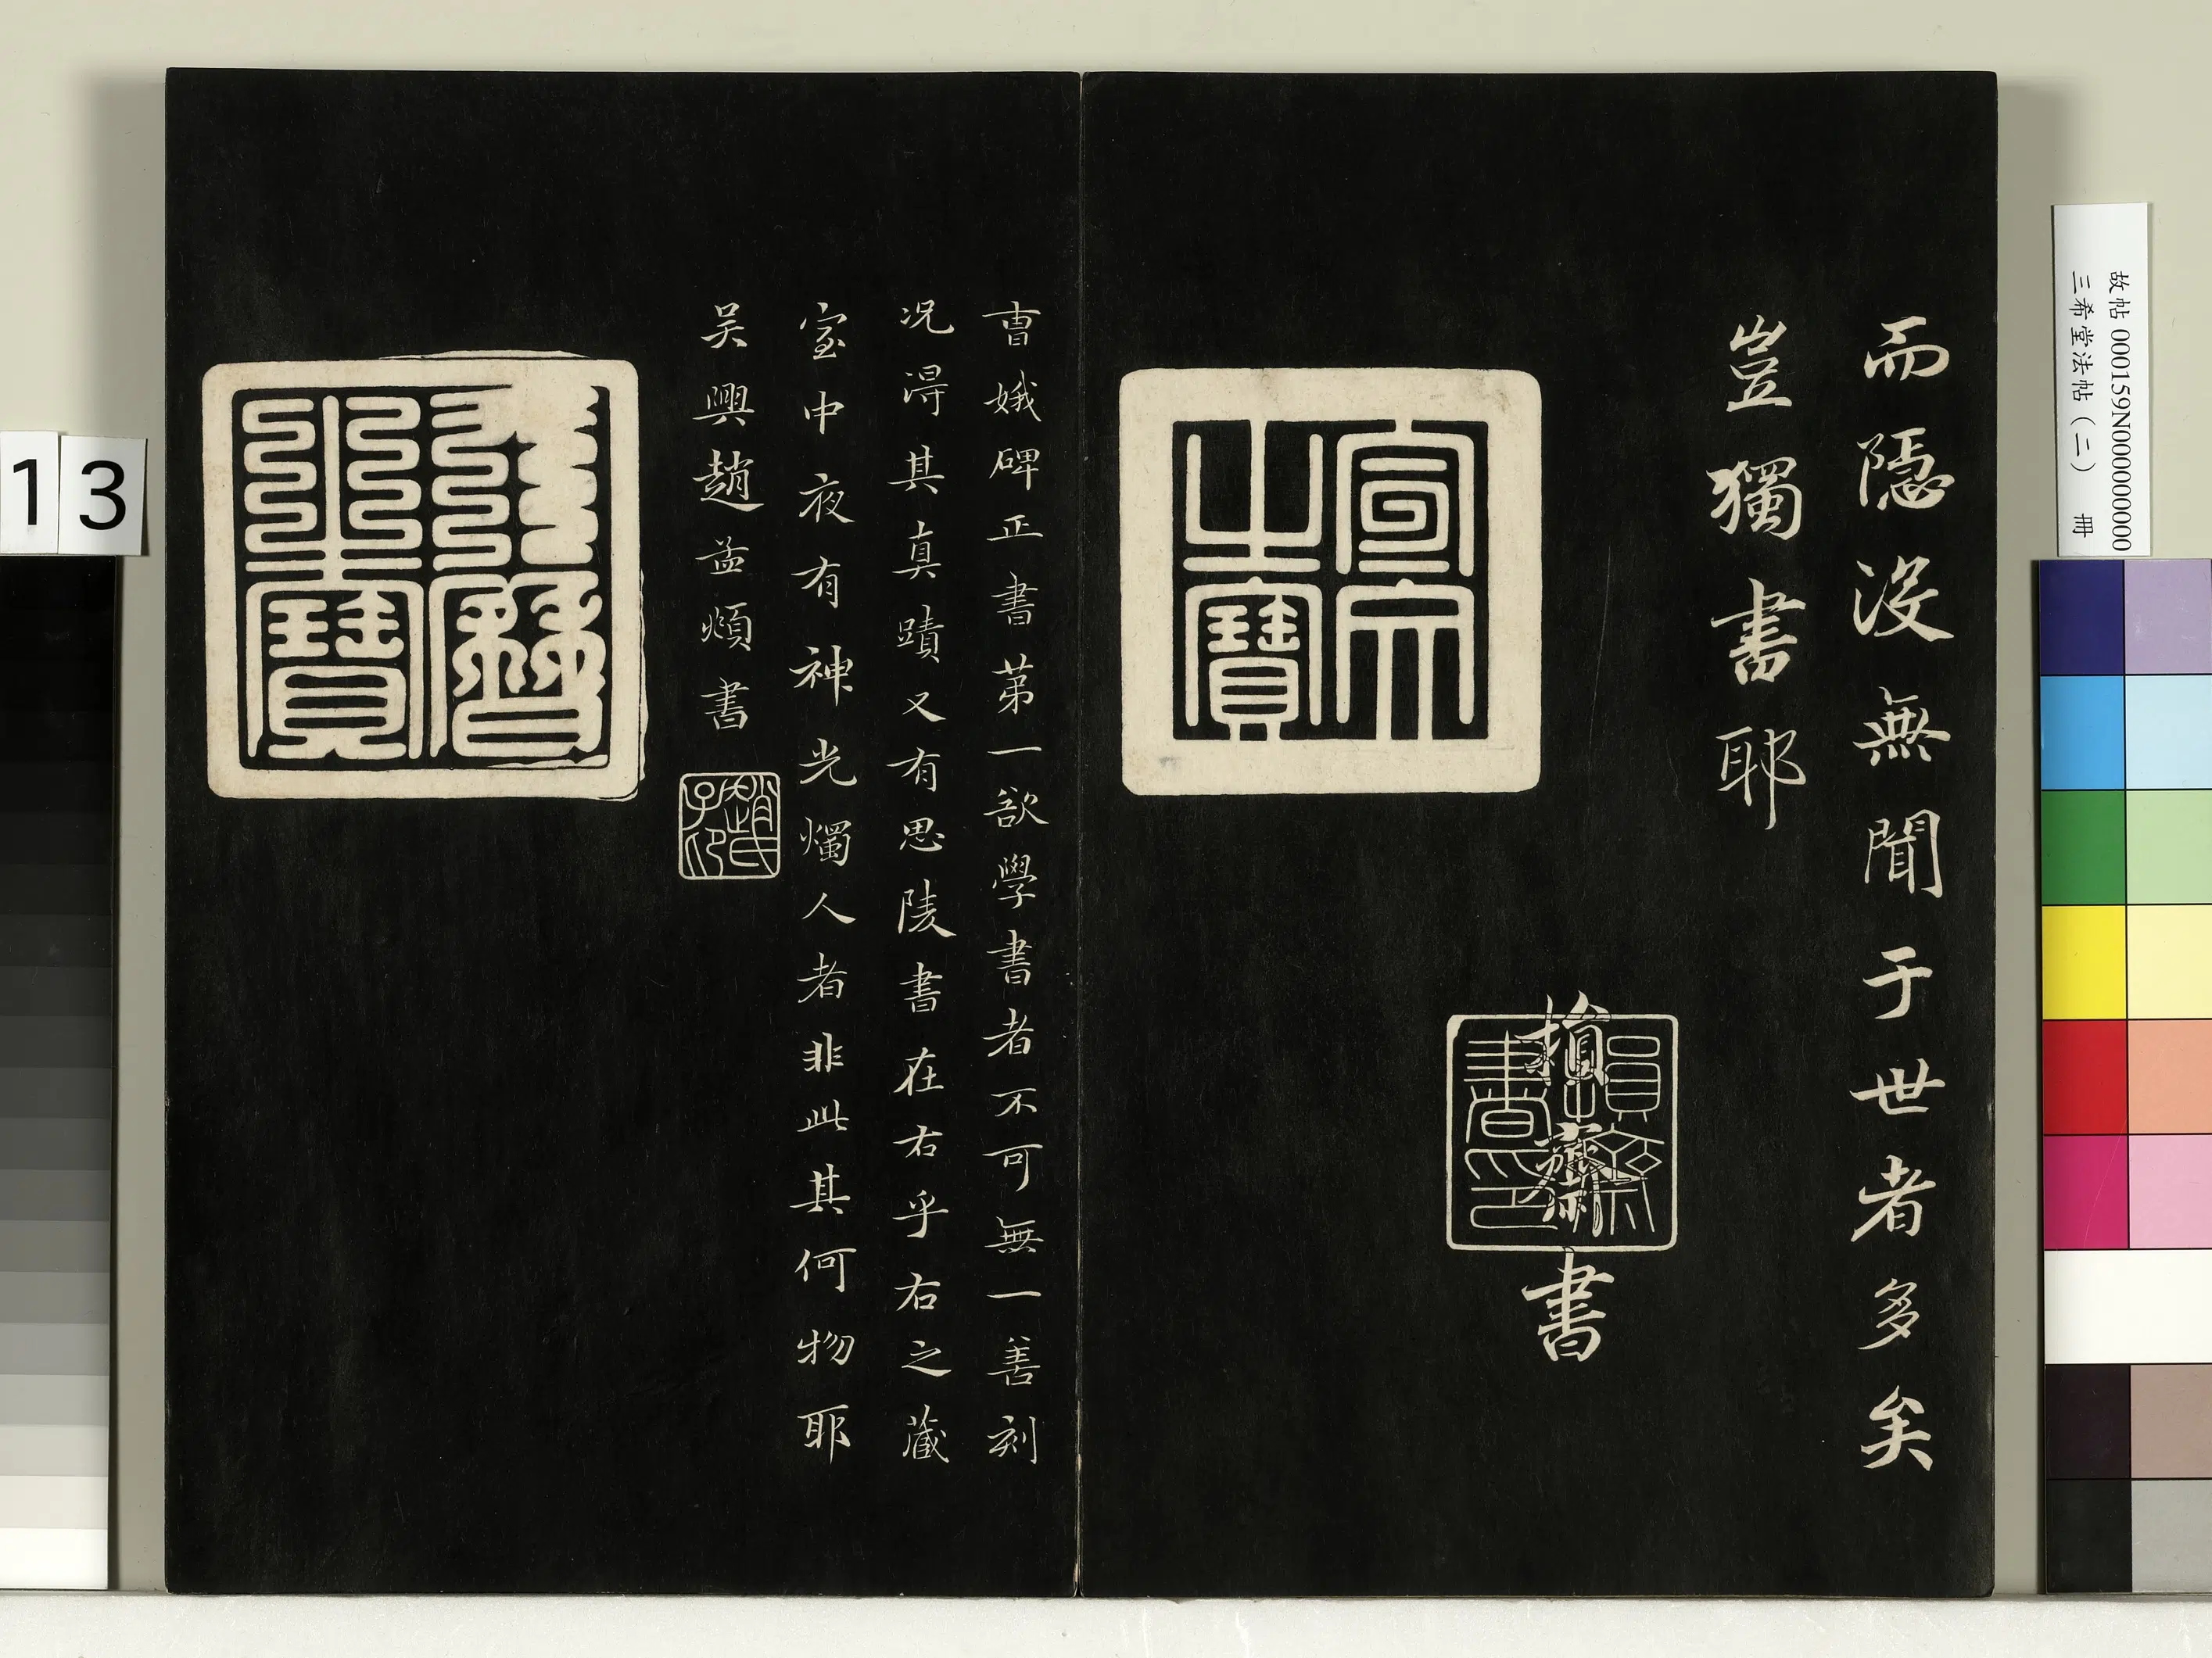 而隱没無聞于世者多矣
豈獨書耶
宣文之寶
損齋書
損齋書印
曺娥碑正書苐一欲學書者不可無一善刻
况得其真蹟又有思陵書在右乎右之藏
室中夜有神光燭人者非此其何物耶
吴興趙孟頫書
趙氏子印
天曆之寶
故帖 000159N000000000
三希堂法帖（二） 冊
13